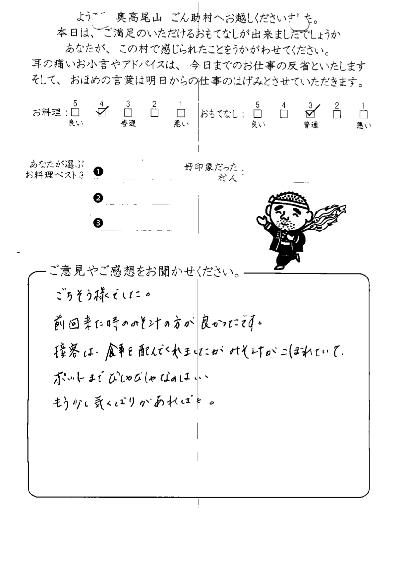 ようこそ 奥高尾山 ごん助村へお越しくださいました。
本日は、ご満足のいただけるおもてなしが出来ましたでしょうか
あなたが、この村で感じられたことをうかがわせてください。
耳の痛いお小言やアドバイスは、今日までのお仕事の反省といたします
そして、おほめの言葉は明日からの仕事のはげみとさせていただきます。
お料理: 5 4 3 2 1 おもてなし: 5 4 3 2 1
良い 普通 悪い 良い 普通 悪い
あなたが選ぶ
お料理ベスト3
1
2
3
好印象だった
村人
ご意見やご感想をお聞かせください。
ごちそう様でした。
前回来た時のみそ汁の方が良かったです。
接客は、食事を配んでくれましたがみそ汁がこぼれていて、
ポットまでびしゃびしゃなのは…
もう少し気くばりがあればと。